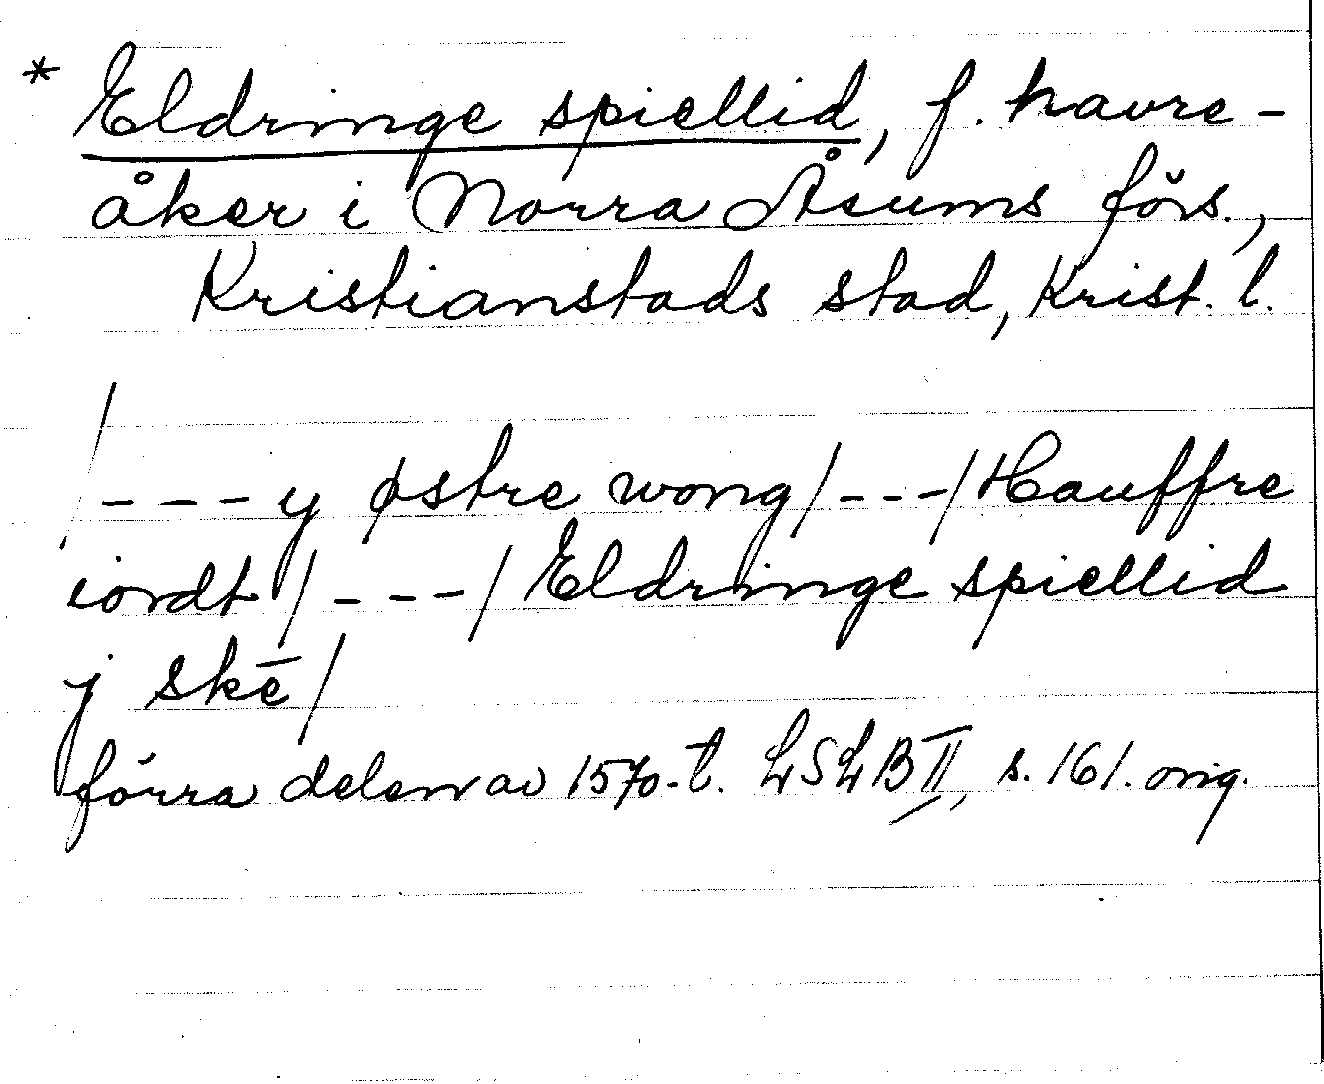 * Eldringe spiellid, f. havre-
åker i Norra Åsums förs.,
Kristianstads stad, Krist. l.
/---y østre wong/---/Hauffre
iordt/---/Eldringe spiellid
j skē/
förra delen av 1570-t. LSLB II, s. 161. orig.